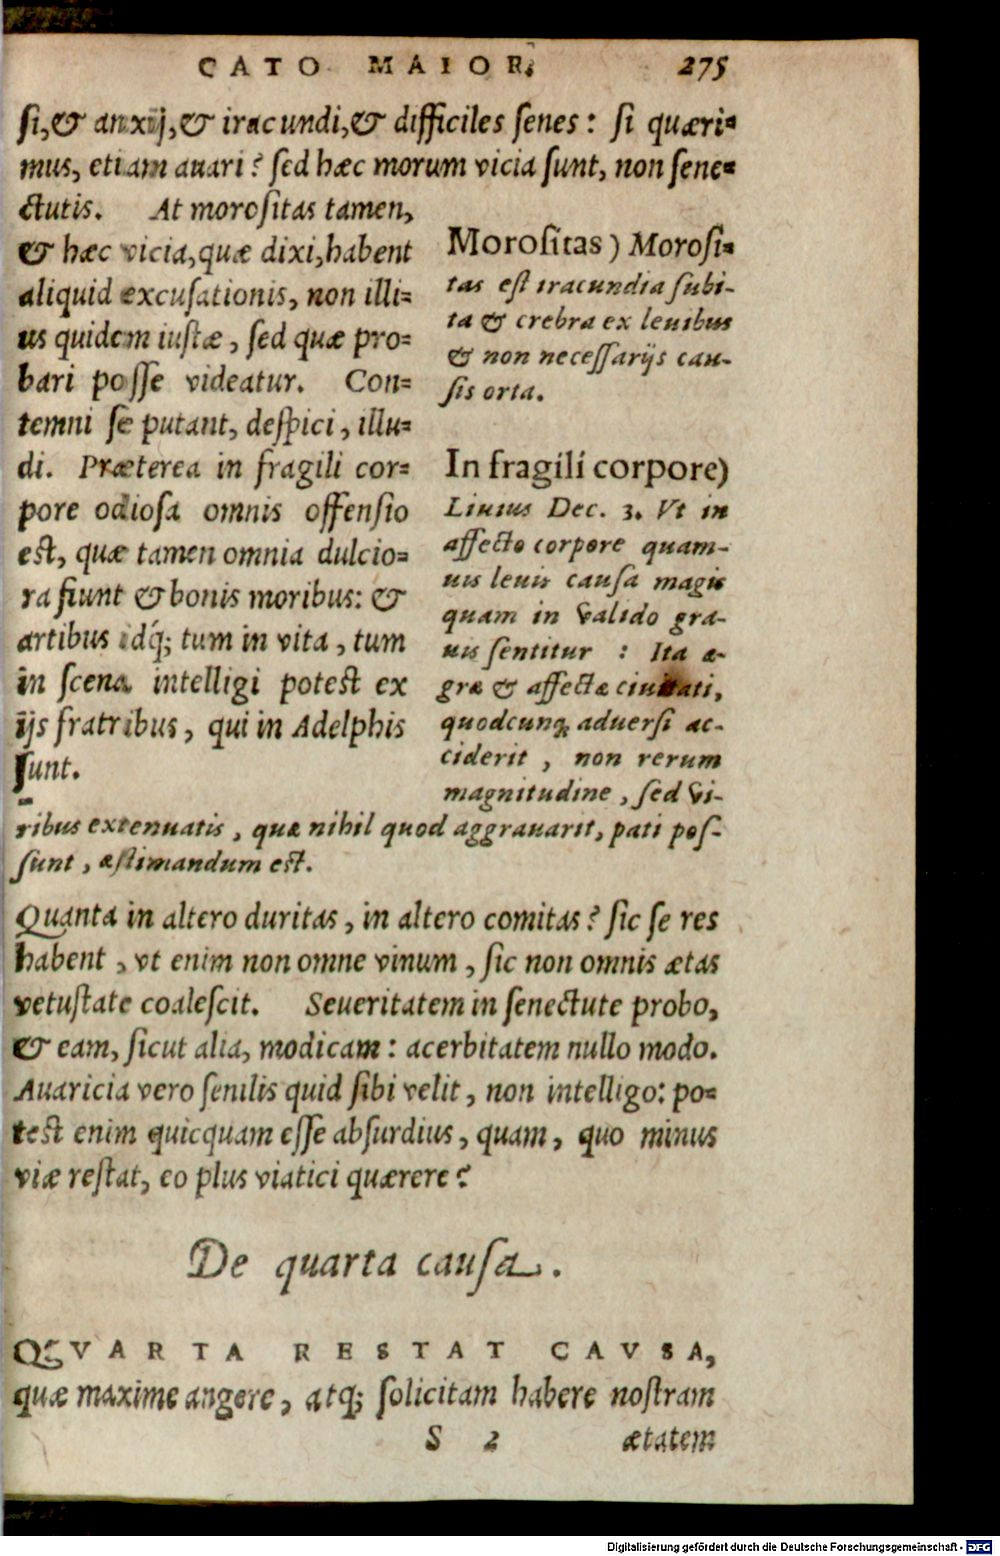 CATO MAIOR. 275
ſi, & anxij, & iracundi, & difficiles ſenes: ſi quæri=
mus, etiam auari? ſed hæc morum vicia ſunt, non ſene=
ctutis. At moroſitas tamen,
& hæc vicia, quæ dixi, habent
aliquid excuſationis, non illi=
us quidem iuſtæ, ſed quæ pro=
bari poſſe videatur. Con=
temni ſe putant, deſpici, illu=
di. Præterea in fragili cor=
pore odioſa omnis offenſio
eſt, quæ tamen omnia dulcio=
ra fiunt & bonis moribus: &
artibus idq́; tum in vita, tum
in ſcena intelligi poteſt ex
ijs fratribus, qui in Adelphis
ſunt.
Moroſitas) Moroſi=
tas eſt iracundia ſubi-
ta & crebra ex leuibus
& non neceſſarijs cau-
ſis orta.
In fragili corpore)
Liuius Dec. 3. Vt in
affecto corpore quam-
uis leuis cauſa magis
quam in valido gra-
uis ſentitur : Ita æ-
græ & affectæ ciuitati,
quodcunq; aduerſi ac-
ciderit, non rerum
magnitudine, ſed vi-
ribus extenuatis, quæ nihil quod aggrauarit, pati poſ-
ſunt, æſtimandum eſt.
Quanta in altero duritas, in altero comitas? ſic ſe res
habent, vt enim non omne vinum, ſic non omnis ætas
vetuſtate coaleſcit. Seueritatem in ſenectute probo,
& eam, ſicut alia, modicam: acerbitatem nullo modo.
Auaricia vero ſenilis quid ſibi velit, non intelligo: po=
teſt enim quicquam eſſe abſurdius, quam, quo minus
viæ reſtat, eo plus viatici quærere?
De quarta cauſa.
QVARTA RESTAT CAVSA,
quæ maxime angere, atq; ſolicitam habere noſtram
S 2 ætatem
Digitalisierung gefördert durch die Deutsche Forschungsgemeinschaft - DFG